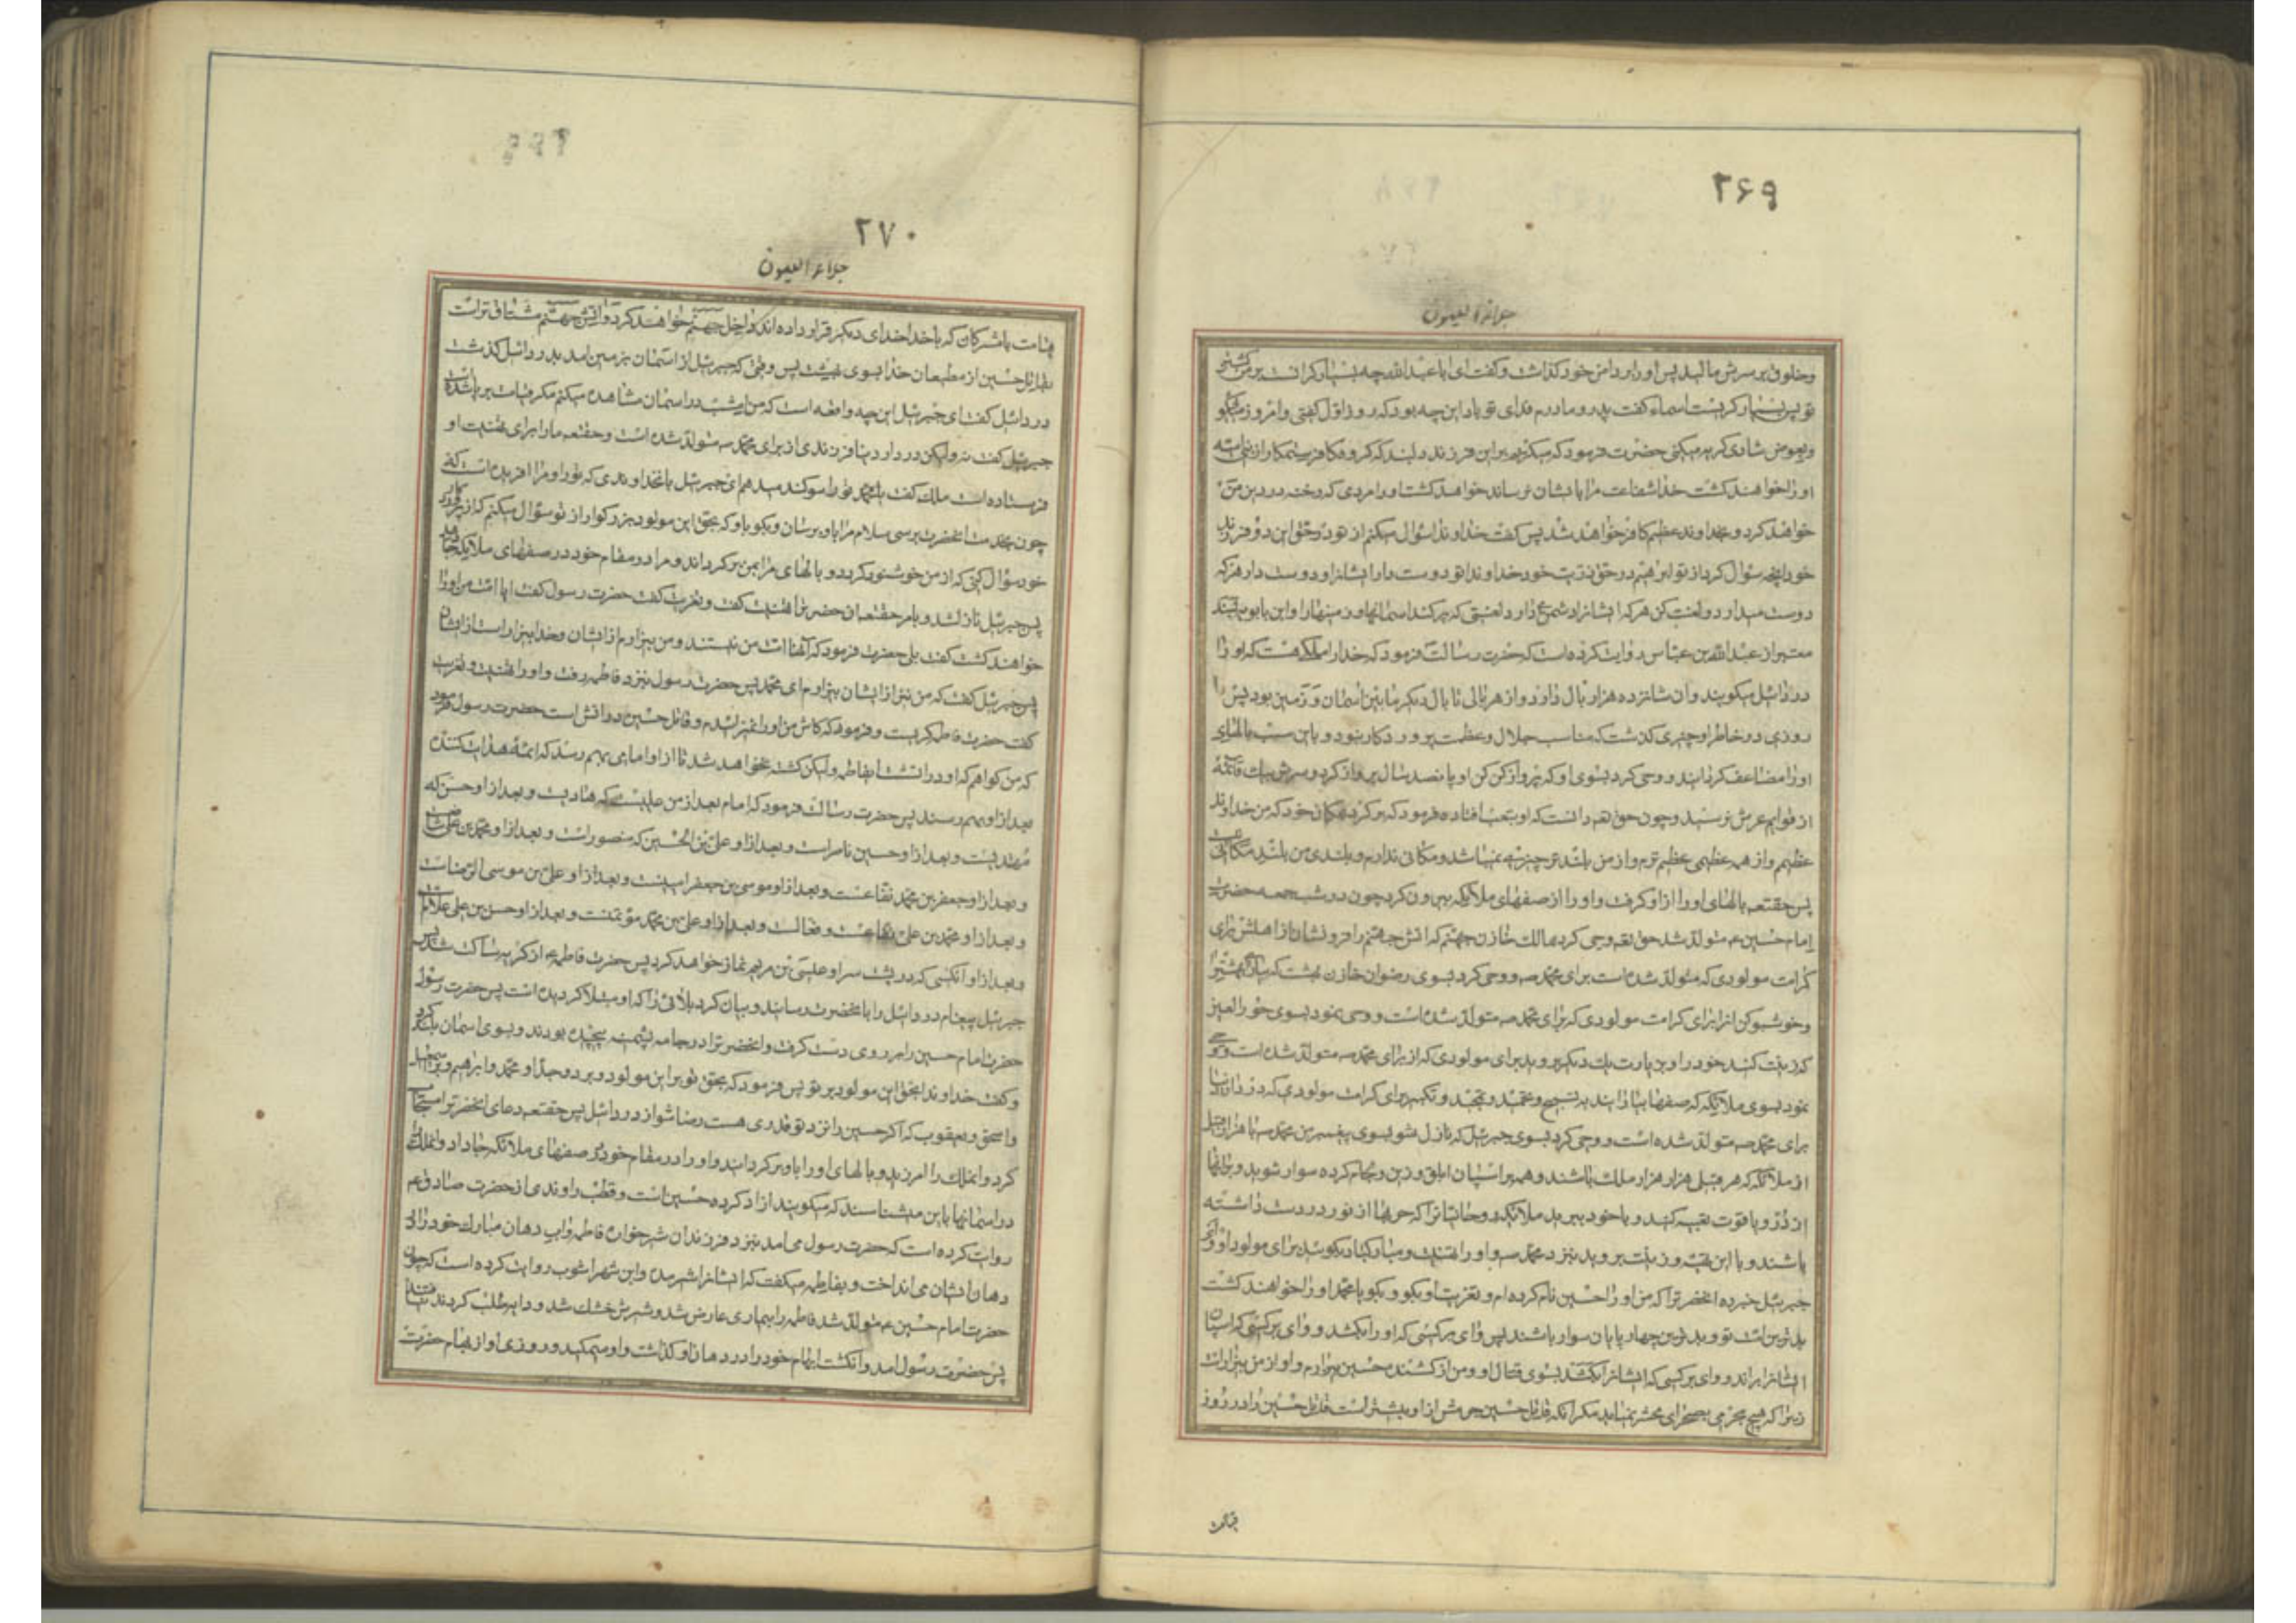 ۲۶۹
جلاء العیون
وخلوق بر سرش مالید پس او را در دامن خود کذاشت و کفت ای ابا عبدالله چه بسیار کرانست بر من کشتن
تو پس بسیار کریست اسماء کفت پدر و مادرم فدای تو باد این چه بود که در روز اوّل کفتی و امروز میکوئی
و بعوض شادی کریه میکنی حضرت فرمود که میکریم بر این فرزند دلبند که کروه کافر ستمکار از بنی امیّه
او را خواهند کشت خدا شفاعت مرا بایشان نرساند خواهد کشت او را مردی که رخنه در دین من
خواهد کرد و بخداوند عظیم کافر خواهد شد پس کفت خداوندا سؤال میکنم از تو در حق این دو فرزند
خود آنچه سؤال کرد از تو ابرهیم در حق ذریّت خود خداوندا تو دوست دار ایشانرا و دوست دار هر که
دوست میدارد و لعنت کن هر که ایشانرا دشمن دارد لعنتی که پر کند آسمانها و زمینها را و ابن بابویه بسند
معتبر از عبدالله بن عبّاس روایت کرده است که حضرت رسالت فرمود که خدا را ملکی هست که او را
دردائیل میکویند و آن شانزده هزار بال دارد و از هر بالی تا بال دیکر مابین آسمان و زمین بود پس
روزی در خاطر او چیزی کذشت که مناسب جلال و عظمت پروردکار نبود و باین سبب بالهای
او را مضاعف کردانید و وحی کرد بسوی او که پرواز کن او پانصد سال پرواز کرد و سرش بیک قائمه
از قوایم عرش نرسید و چون حق تعه دانست که او بتعب افتاده فرمود که برکرد بمکان خود که من خداوند
عظیم و از همه عظیمی عظیم ترم و از من بلندتر چیزی نمیباشد و مکانی ندارم و بلندی من بلندی مکانی نیست
پس حقتعه بالهای او را از او کرفت و او را از صفهای ملائکه بیرون کرد چون در شب جمعه حضرت
امام حسین عم متولّد شد حق تعه وحی کرد بمالک خازن جهنّم که آتش جهنّم را فرو نشان از اهلش برای
کرامت مولودی که متولّد شده است برای محمّد صه و وحی کرد بسوی رضوان خازن بهشت که
و خوشبو کن آنرا برای کرامت مولودی که برای محمّد صه متولّد شده است و وحی نمود بسوی حور العین
که زینت کنید خود را و بزیارت یکدیکر بروید برای مولودی که از برای محمّد صه متولّد شده است و وحی
نمود بسوی ملائکه که صفها بیارایند به تسبیح و تحمید و تمجید و تکبیر برای کرامت مولودی که در دار دنیا
برای محمّد صه متولّد شده است و وحی کرد بسوی جبرئیل که نازل شو بسوی پیغمبر من محمّد صه با هزار قبیل
از ملائکه که هر قبیل هزار هزار ملک باشند و همه بر اسپان ابلق و زین و لجام کرده سوار شوید و بر آنها
از دُرّ و یاقوت تعبیه کنید و با خود ببرید ملائکه روحانیانرا که حربها از نور در دست داشته
باشند و با این تعبیه و زینت بروید بنزد محمّد صه و او را تهنیت و مبارکباد بکویند برای مولود او
جبرئیل خبر ده آنحضرترا که من او را حسین نام کرده ام و تعزیت او بکو و بکو یا محمّد او را خواهند کشت
بدترین امّت تو و بدترین چهارپایان سوار باشند پس وای بر کسی که او را بکشد و وای بر کسی که اسپان
ایشانرا براند و وای بر کسی که ایشانرا بکشد بسوی قتال او و من از کشنده حسین بیزارم و او از من بیزار است
زیرا که هیچ مجرمی بصحرای محشر نمیآید مکر آنکه قاتل حسین جرمش از او بیشتر است قاتل حسین را در روز
قیامت
۲۷۰
جلاء العیون
قیامت با مشرکان که با خدا خدای دیکر قرار داده اند داخل جهنّم خواهند کرد و آتش جهنّم مشتاق تر است
بقاتل حسین از مطیعان خدا بسوی بهشت پس وقتی که جبرئیل از آسمان بزمین آمد بدردائیل کذشت
دردائیل کفت ای جبرئیل این چه واقعه است که من امشب در آسمان مشاهده میکنم مکر قیامت بر پا شده است
جبرئیل کفت نه ولیکن در دار دنیا فرزندی از برای محمّد صه متولّد شده است و حقتعه ما را برای تهنیت او
فرستاده است ملک کفت سوکند میدهم ای جبرئیل بآنخداوندی که تو را و مرا آفریده است که
چون بخدمت آنحضرت برسی سلام مرا باو برسان و بکو باو که بحق این مولود بزرکوار از تو سؤال میکنم که از پروردکار
خود سؤال کنی که از من خوشنود کردد و بالهای مرا بمن برکرداند و مرا در مقام خود در صفهای ملائکه جا دهد
پس جبرئیل نازل شد و بامر حقتعه آن حضرترا تهنیت کفت و تعزیت کفت حضرت رسول کفت آیا امّت من او را
خواهند کشت کفت بلی حضرت فرمود که آنها امّت من نیستند و من بیزارم از ایشان و خدا بیزار است از ایشان
پس جبرئیل کفت که من نیز از ایشان بیزارم ای محمّد پس حضرت رسول بنزد فاطمه رفت و او را تهنیت و تعزیت
کفت حضرت فاطمه کریست و فرمود که کاش من او را نمیزائیدم و قاتل حسین در آتش است حضرت رسول فرمود
که من کواهم که او در آتش است ایفاطمه ولیکن کشته نخواهد شد تا از او امامی بهم رسد که ائمّهٔ هدایت کننده
بعد از او بهم رسند پس حضرت رسالت فرمود که امام بعد از من علیست که هادیست و بعد از او حسن که
مهتدیست و بعد از او حسین ناصر است و بعد از او علی بن الحسین که منصور است و بعد از او محمّد بن علی
و بعد از او جعفر بن محمّد نفّاعست و بعد از او موسی بن جعفر امینست و بعد از او علی بن موسی الرّضاست
و بعد از او محمّد بن علی و فعّالست و بعد از او علی بن محمّد مؤتمنست و بعد از او حسن بن علی علّام
و بعد از او آنکسی که در پشت سر او عیسی بن مریم نماز خواهد کرد پس حضرت فاطمه عه از کریه ساکت شد پس
جبرئیل پیغام دردائیل را بآنحضرت رسانید و بیان کرد بلائی را که او مبتلا کردیده است پس حضرت رسول
حضرت امام حسین را بر روی دست کرفت و آنحضرترا در جامه پشمینه پیچیده بودند و بسوی آسمان بلند کرد
و کفت خداوندا بحق این مولود بر تو پس فرمود که بحق تو بر این مولود و بر دو جدّ او محمّد و ابرهیم و اسمعیل
و اسحق و یعقوب که اکر حسین را نزد تو قدری هست رضا شو از دردائیل پس حقتعه دعای آنحضرترا مستجاب
کرد و آنملک را آمرزید و بالهای او را باو برکردانید و او را در مقام خود در صفهای ملائکه جا داد و آنملک را
در آسمانها باین میشناسند که میکویند آزاد کرده حسین است و قطب راوندی از حضرت صادق عم
روایت کرده است که حضرت رسول می آمد بنزد فرزندان شیرخواره فاطمه و آب دهان مبارک خود را در
دهان ایشان می انداخت و بفاطمه میکفت که ایشانرا شیر مده و ابن شهرآشوب روایت کرده است که چون
حضرت امام حسین عم متولّد شد فاطمه را بیماری عارض شد و شیرش خشک شد و دایه طلب کردند نیافتند
پس حضرت رسول آمد و انکشت ابهام خود را در دهان او کذاشت و او میمکید و روزی او از ابهام حضرت